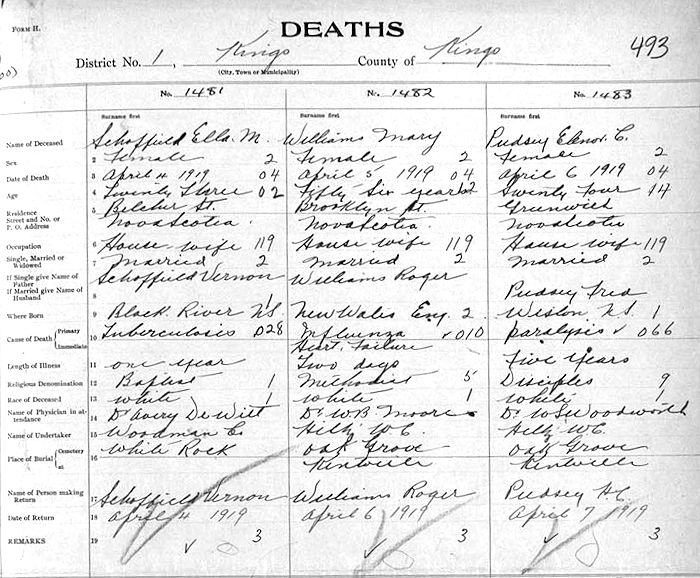 FORM H.
DEATHS
493
District No. 1, Kings County of Kings
(City, Town or Municipality)
No. 1481 No. 1482 No. 1483
Surname first Surname first Surname first
Name of Deceased Schoffield Ella M. Williams Mary Pudsey Elenor C.
Sex 2 Female 2 Female 2 Female 2
Date of Death 3 April 4 1919 04 April 5 1919 04 April 6 1919 04
Age 4 Twenty Three 02 Fifty Six years Seventy Four 14
Residence
Street and No. or
P. O. Address
5 Belcher St. Brooklyn St. Greenwich
Nova Scotia Nova Scotia Nova Scotia
Occupation 6 House wife 119 House wife 119 House wife 119
Single, Married or
Widowed
7 Married 2 Married 2 Married 2
If Single give Name of
Father
Schoffield Vernon Williams Roger
If Married give Name of
Husband
8 Pudsey Fred
Where Born 9 Black River N.S. 1 New Wales Eng. 2 Weston, N.S. 1
Cause of Death Primary 10 Tuberculosis 028 Influenza 010 Paralysis 066
Immediate Heart Failure
Length of Illness 11 one year Two days Five Years
Religious Denomination 12 Baptist 1 Methodist 5 Disciples 9
Race of Deceased 13 White 1 White 1 White 1
Name of Physician in at-
tendance
14 Dr Avery DeWitt Dr WB Moore Dr WS Woodworth
Name of Undertaker 15 Woodman C.
Place of Burial Cemetery
at
16 White Rock Oak Grove Oak Grove
Kentville Kentville
Name of Person making
Return
17 Schoffield Vernon Williams Roger Pudsey H C.
Date of Return 18 April 4 1919 April 6 1919 April 7 1919
REMARKS 19 3 3 3